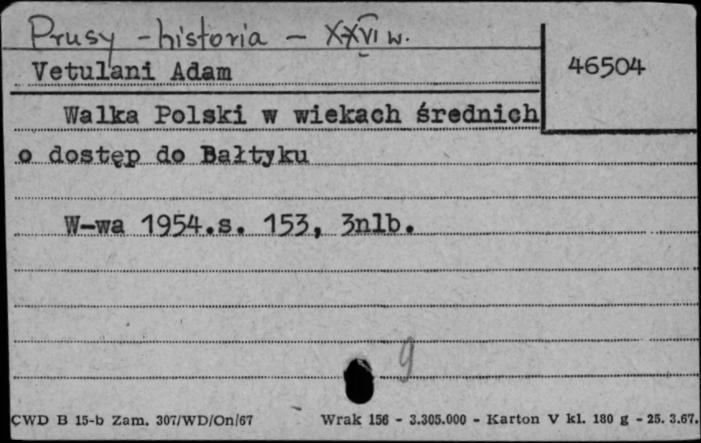 Prusy - historia - XVI w.
Vetulani Adam
46504
Walka Polski w wiekach średnich
o dostęp do Bałtyku
W-wa 1954.s. 153, 3nlb.
9
CWD B 15-b Zam. 307/WD/On/67
Wrak 156 - 3.305.000 - Karton V kl. 180 g - 25. 3.67.